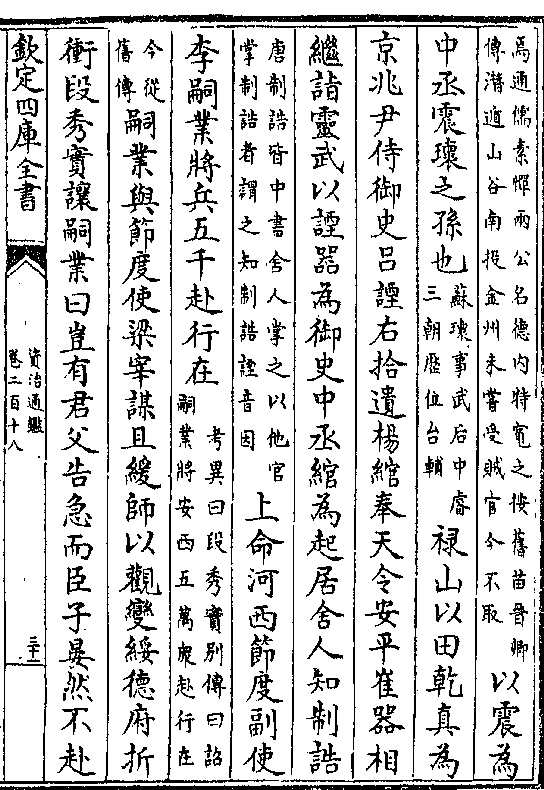 焉通儒素憚兩公名德内特寛之按舊苗晉卿
傳潛遁山谷南投金州未嘗受賊官今不取
以震為
中丞震瓌之孫也
蘇瓌事武后中睿
三朝歴位台輔
禄山以田乾真為
京兆尹侍御史吕諲右拾遺楊綰奉天令安平崔器相
繼詣靈武以諲器為御史中丞綰為起居舍人知制誥
唐制誥皆中書舍人掌之以他官
掌制誥者謂之知制誥諲音因
上命河西節度副使
李嗣業將兵五千赴行在
考異曰段秀實别傳曰詔
嗣業將安西五萬衆赴行在
今從
舊傳
嗣業與節度使梁宰謀且緩師以觀變綏德府折
衝段秀實讓嗣業曰豈有君父告急而臣子晏然不赴
欽定四庫全書
資治通鑑
卷二百十八